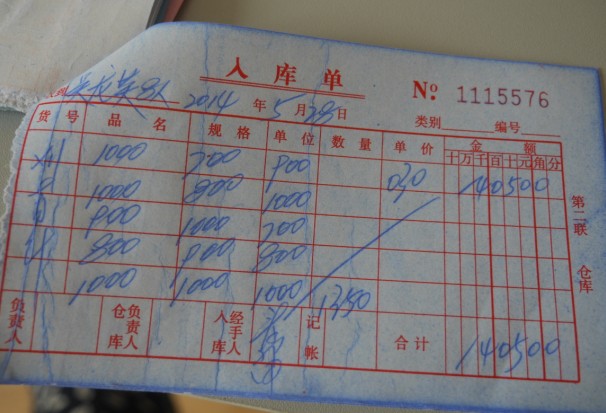 入库单
№ 1115576
2014年5月28日
类别 编号
货号 品名 规格 单位 数量 单价 金额
十万千百十元角分
1000 700 900 030 140500
1000 800 1000
900 1000 700
800 900 800
1000 1000 1000 1350
第二联 仓库
负责人 仓库负责人 入库经手人 记帐 合计 140500